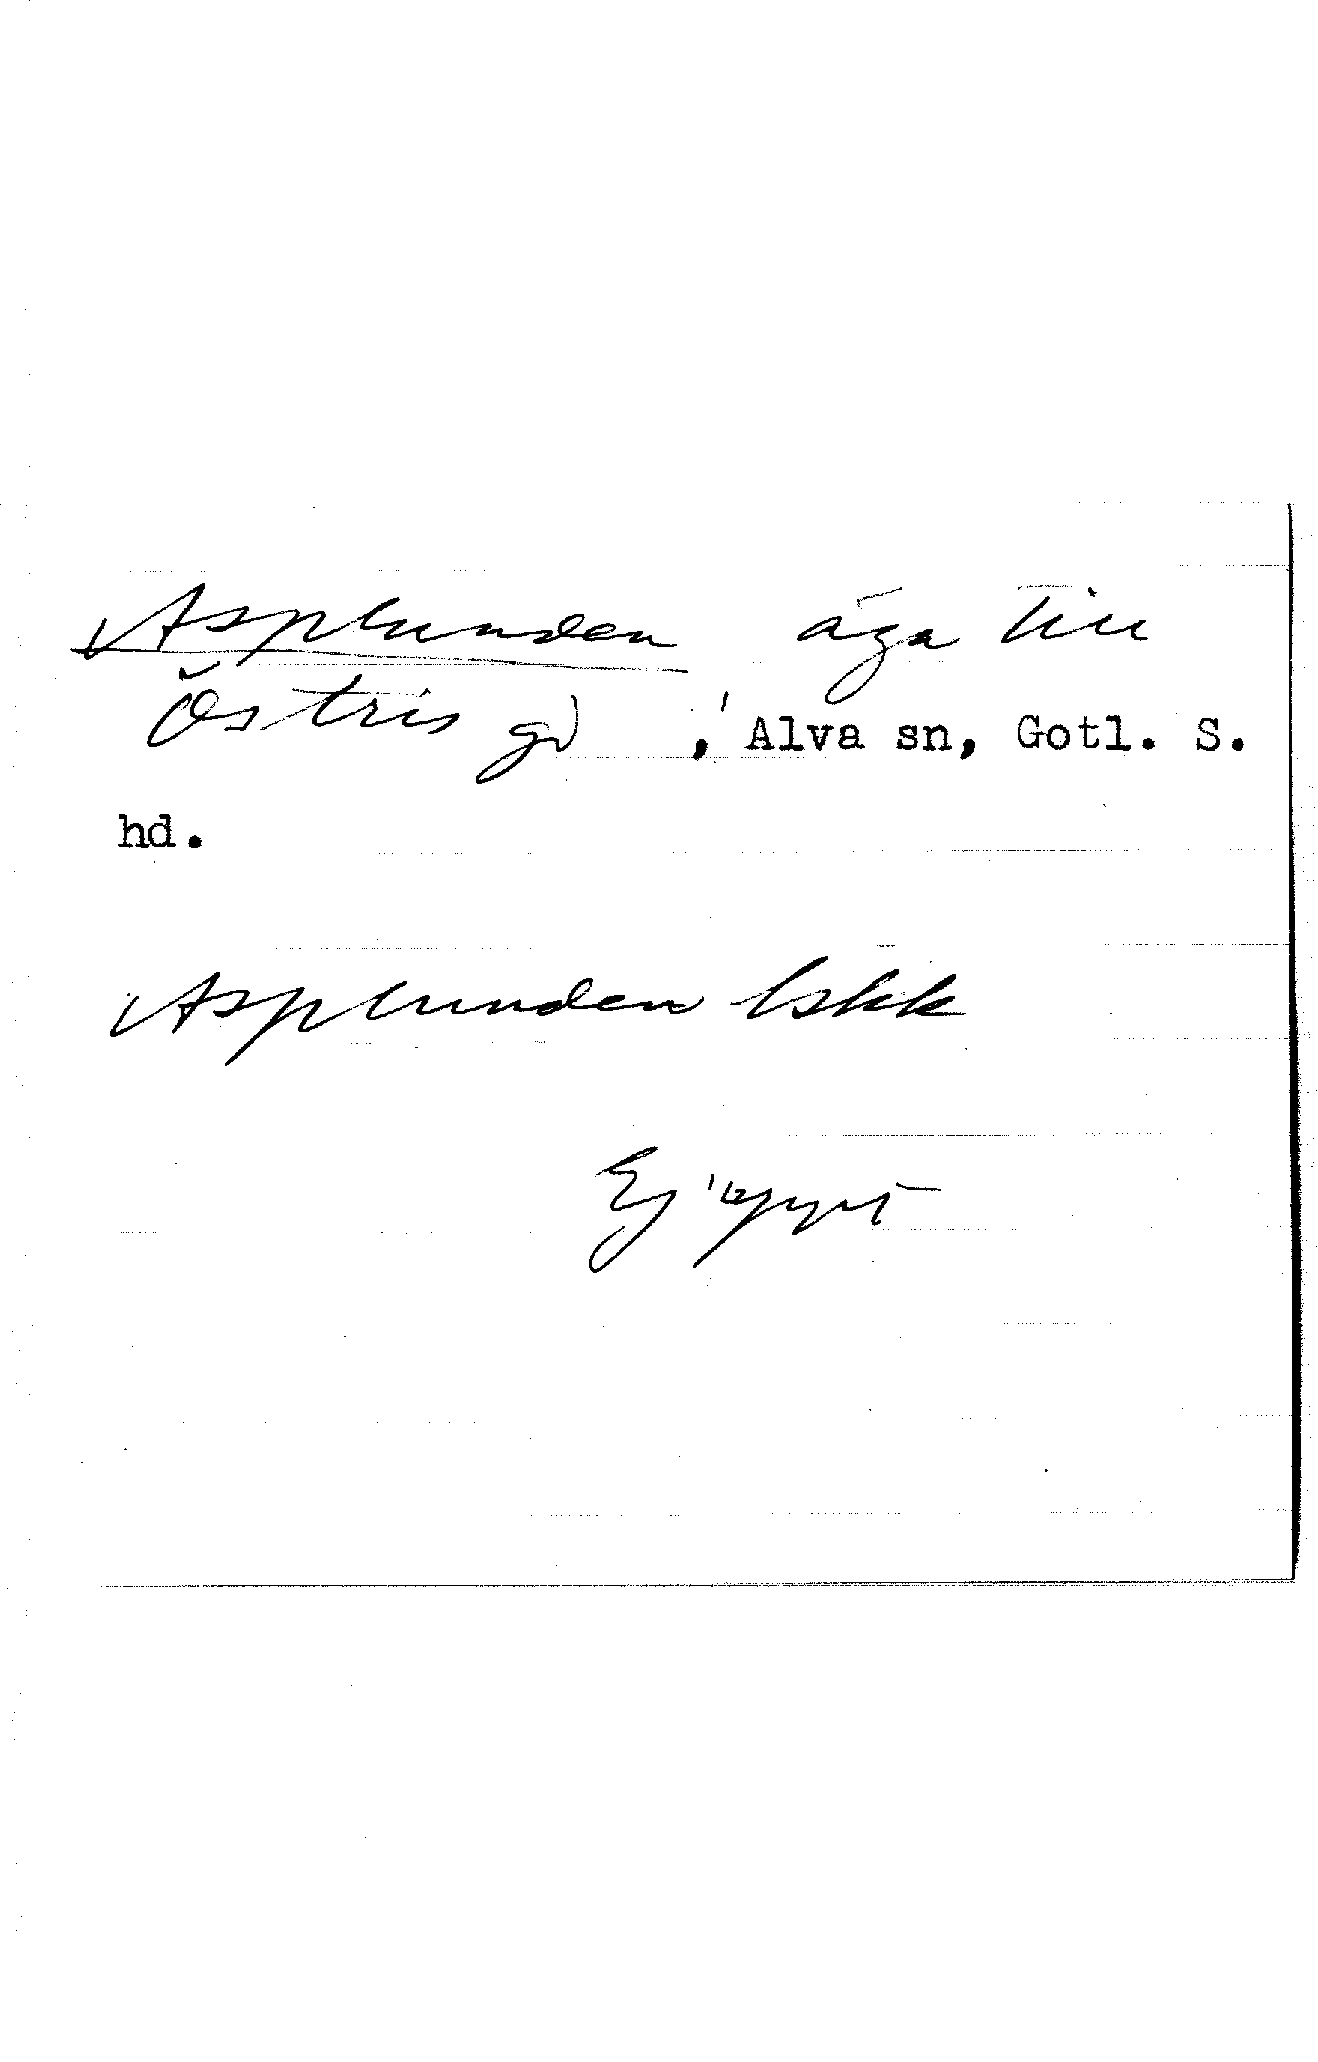 Asplunden äga till
Östris gd, Alva sn, Gotl. S.
hd.
Asplunden lskk
Ej uppt